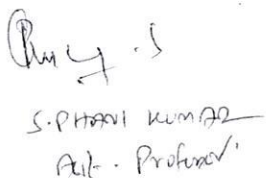 S. PHANI KUMAR
Asst. Professor